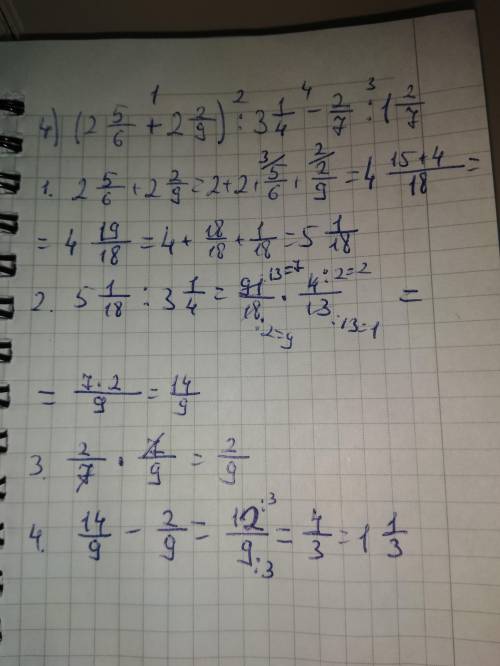 4) (2 5/6 +¹ 2 2/9) :² 3 1/4 -⁴ 2/7 :³ 1 2/7
1. 2 5/6 + 2 2/9 = 2 + 2 + ³⁄ 5/6 + ²⁄ 2/9 = 4 (15+4)/18 =
= 4 19/18 = 4 + 18/18 + 1/18 = 5 1/18
2. 5 1/18 : 3 1/4 = 91 :13=7 / 18 :2=9 · 4 :2=2 / 13 :13=1 =
= (7·2)/9 = 14/9
3. 2/7 · 7/9 = 2/9
4. 14/9 - 2/9 = 12 :3 / 9 :3 = 4/3 = 1 1/3